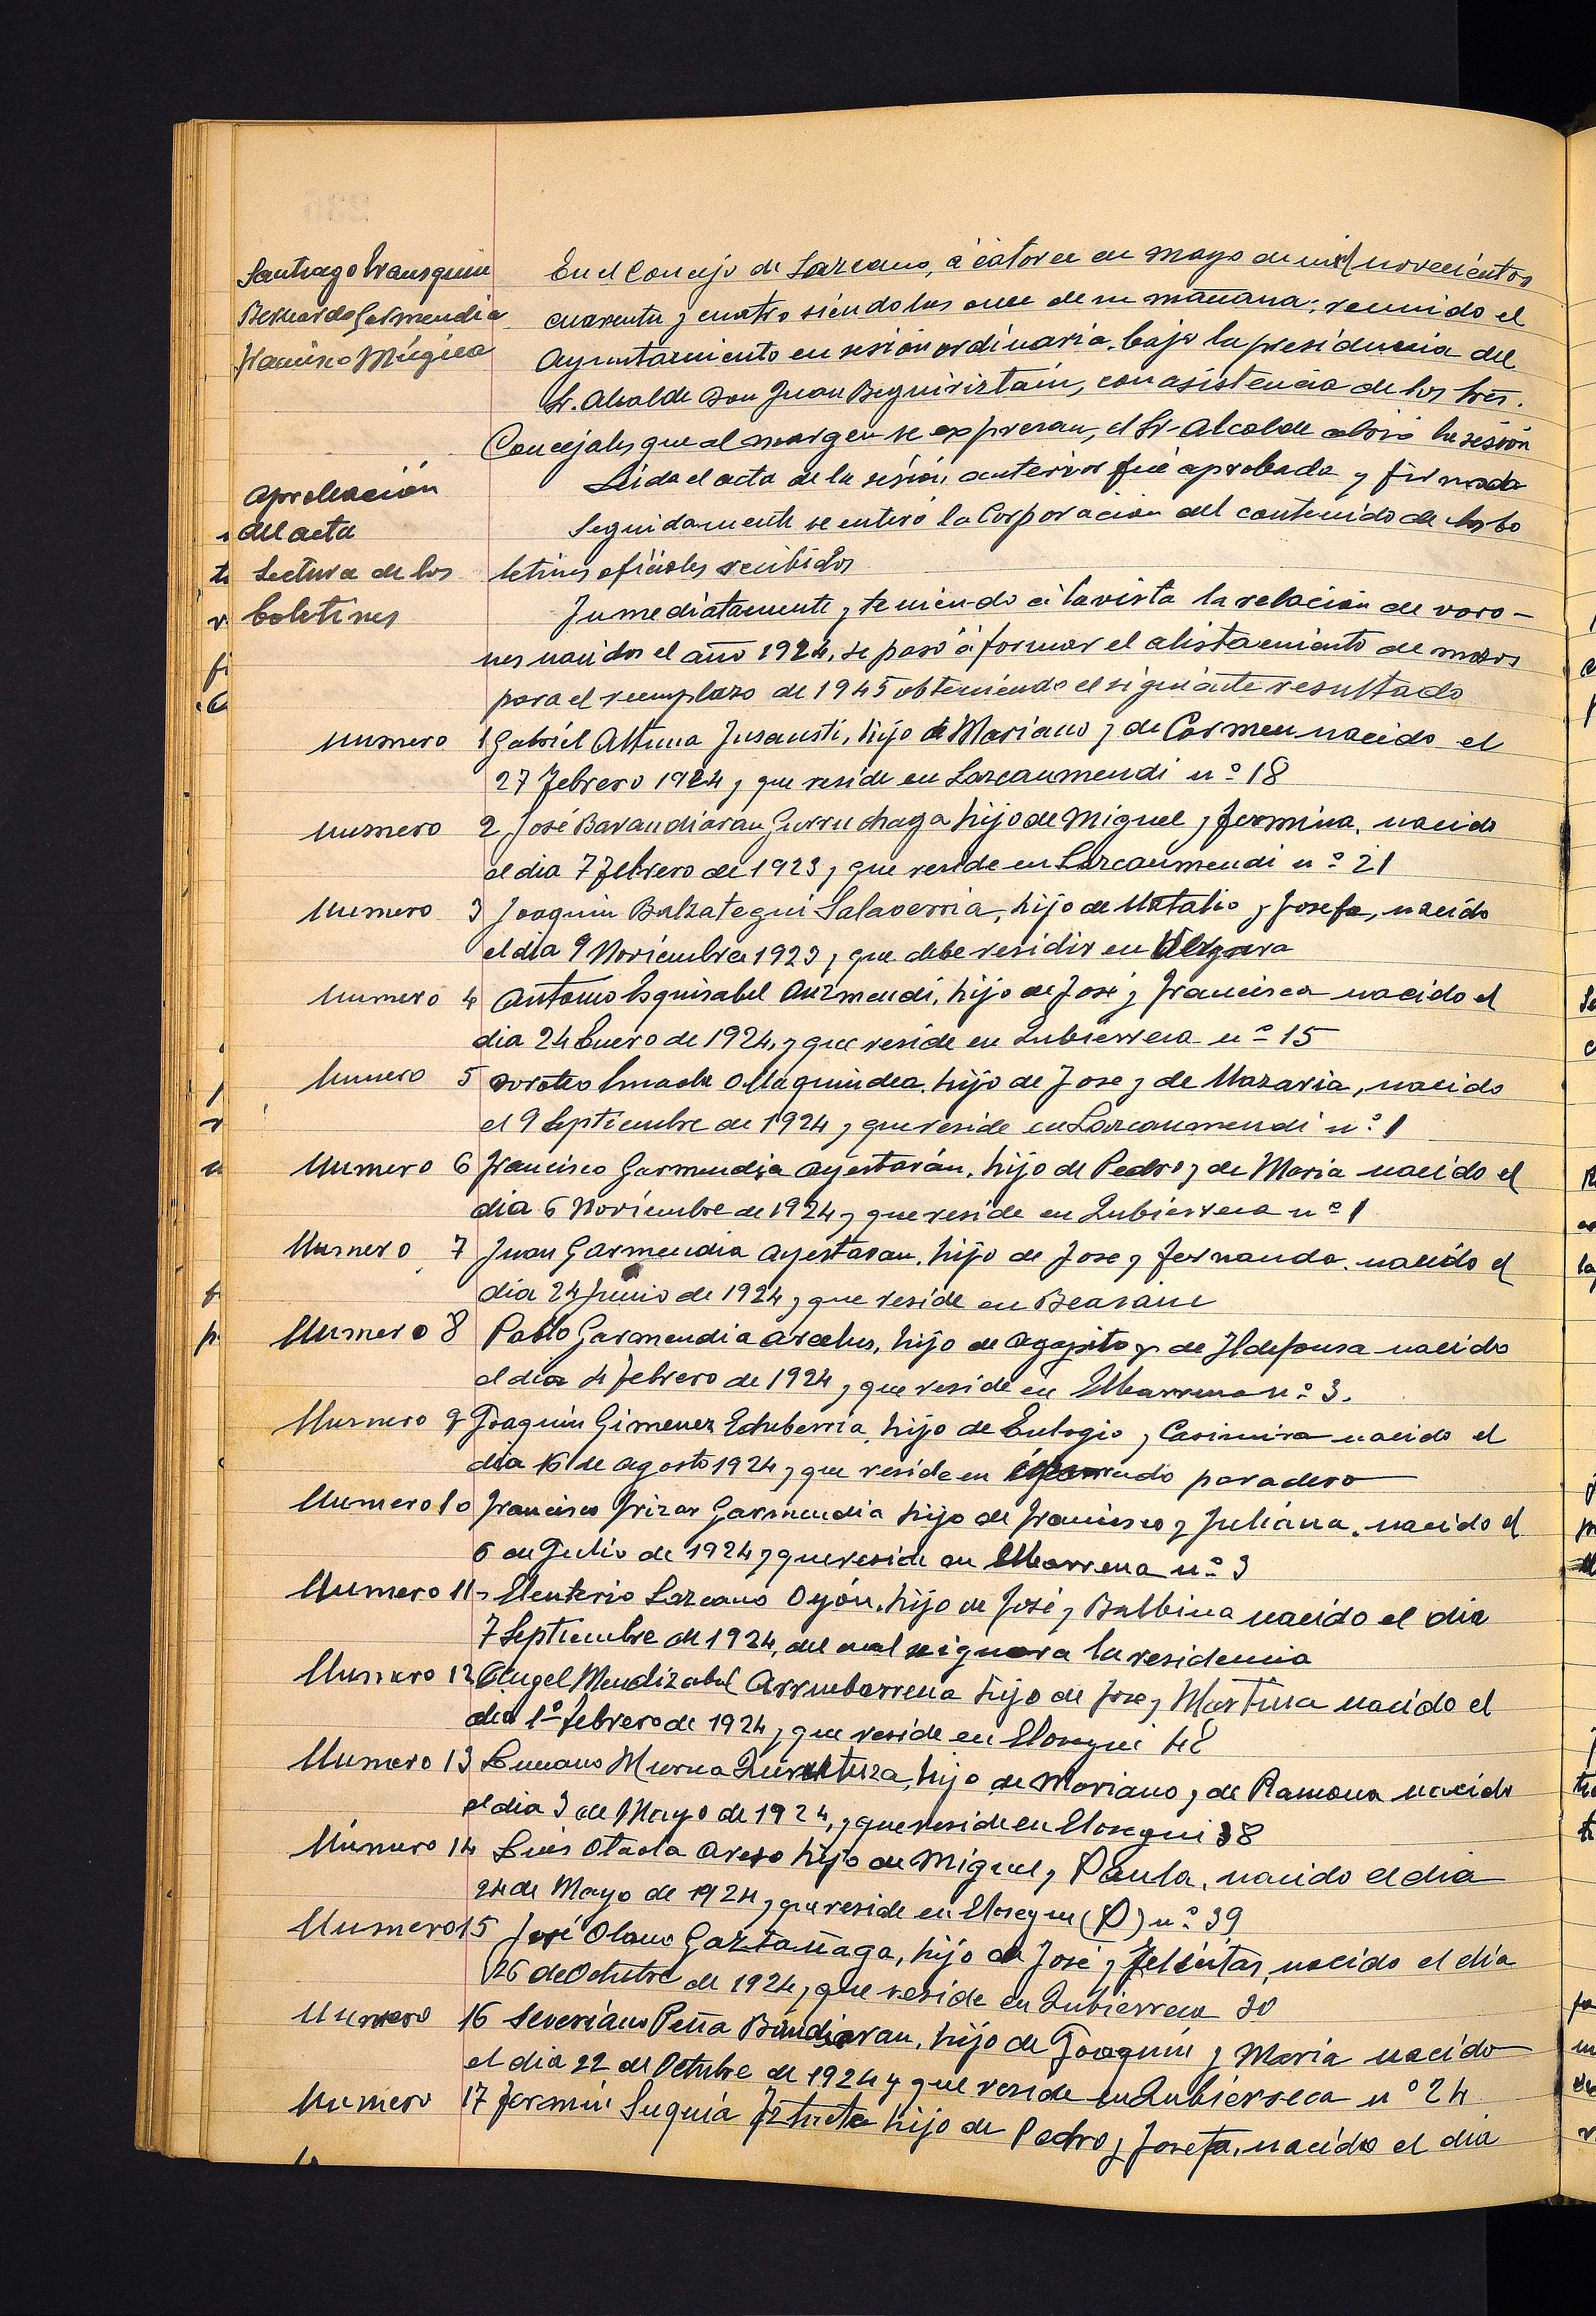 Santiago Iransquin
Bernardo Garmendia
Francisco Múgica
En el Concejo de Lazcano, á catorce de mayo de mil novecientos
cuarenta y cuatro siendo las once de su mañana; reunido el
Ayuntamiento en sesion ordinaria bajo la presidencia del
Sr. Alcalde Don Juan Beguiristain, con asistencia de los Sres.
Concejales que al margen se expresan, el Sr. Alcalde abrió la sesión
Aprobación
del acta
Leida el acta de la sesión anterior fué aprobada y firmada
Lectura de los
boletines
Seguidamente se enteró la Corporacion del contenido de los bo
letines oficiales recibidos
Inmediatamente y teniendo á la vista la relacion de varo-
nes nacidos el año 1924, se pasó á formar el alistamiento de mozos
para el reemplazo de 1945 obteniendo el siguiente resultado
Numero 1 Gabriel Altuna Insausti, hijo de Mariano y de Carmen nacido el
27 Febrero 1924 y que reside en Lazcaumendi nº 18
Numero 2 José Barandiaran Gurruchaga hijo de Miguel y Fermina, nacido
el dia 7 Febrero de 1923 y que reside en Lazcaumendi nº 21
Numero 3 Joaquin Balzategui Salaverria, hijo de Natalio y Josefa, nacido
el dia 9 Noviembre 1923 y que debe residir en
Numero 4 Antonio Esquisabel Auzmendi, hijo de José y Francisca nacido el
dia 24 Enero de 1924, y que reside en Zubierreca nº 15
Numero 5 Doroteo Ollaquindea, hijo de Jose y de Nazaria, nacido
el 9 Septiembre de 1924 y que reside en Lazcaumendi nº 1
Numero 6 Francisco Garmendia Ayestarán, hijo de Pedro y de Maria nacido el
dia 6 Noviembre de 1924 y que reside en Zubierreca nº 1
Numero 7 Juan Garmendia Ayestaran, hijo de Jose y Fernanda nacido el
dia 24 Junio de 1924 y que reside en Beasain
Numero 8 Pablo Garmendia Arcelus, hijo de Agapito y de Ildefonsa nacido
el dia 4 Febrero de 1924 y que reside en Elbarrena nº 3.
Numero 9 Joaquin Gimenez Echeberria, hijo de Eulogio y Casimira nacido el
dia 16 de Agosto 1924 y que reside en paradero
Numero 10 Francisco Irizar Garmendia hijo de Francisco y Juliana, nacido el
6 de Julio de 1924 y que reside en Elbarrena nº 3
Numero 11- Eleuterio Lazcano Oyón, hijo de José y Balbina nacido el dia
7 Septiembre de 1924, del cual se ignora la residencia
Numero 12 Angel Mendizabal Arruebarrena hijo de Jose y Martina nacido el
dia 1º febrero de 1924 y que reside en Elosegui 48
Numero 13 Luciano Murua hijo de Mariano y de Ramona nacido
el dia 3 de Mayo de 1924, y que reside en Elosegui 38
Número 14 Luis Otaola Areso hijo de Miguel y Paula, nacido el dia
24 de Mayo de 1924 y que reside en Elosegui (P) nº 39
Numero 15 José Olano Gaztañaga, hijo de José y Felicitas, nacido el día
26 de Octubre de 1924 y que reside en Zubierreca 30
Numero 16 Severiano Peña hijo de Joaquin y Maria nacido
el dia 22 de Octubre de 1924 y que reside en Zubierreca nº 24
Numero 17 Fermin Suquía Iztueta hijo de Pedro y Josefa, nacido el dia